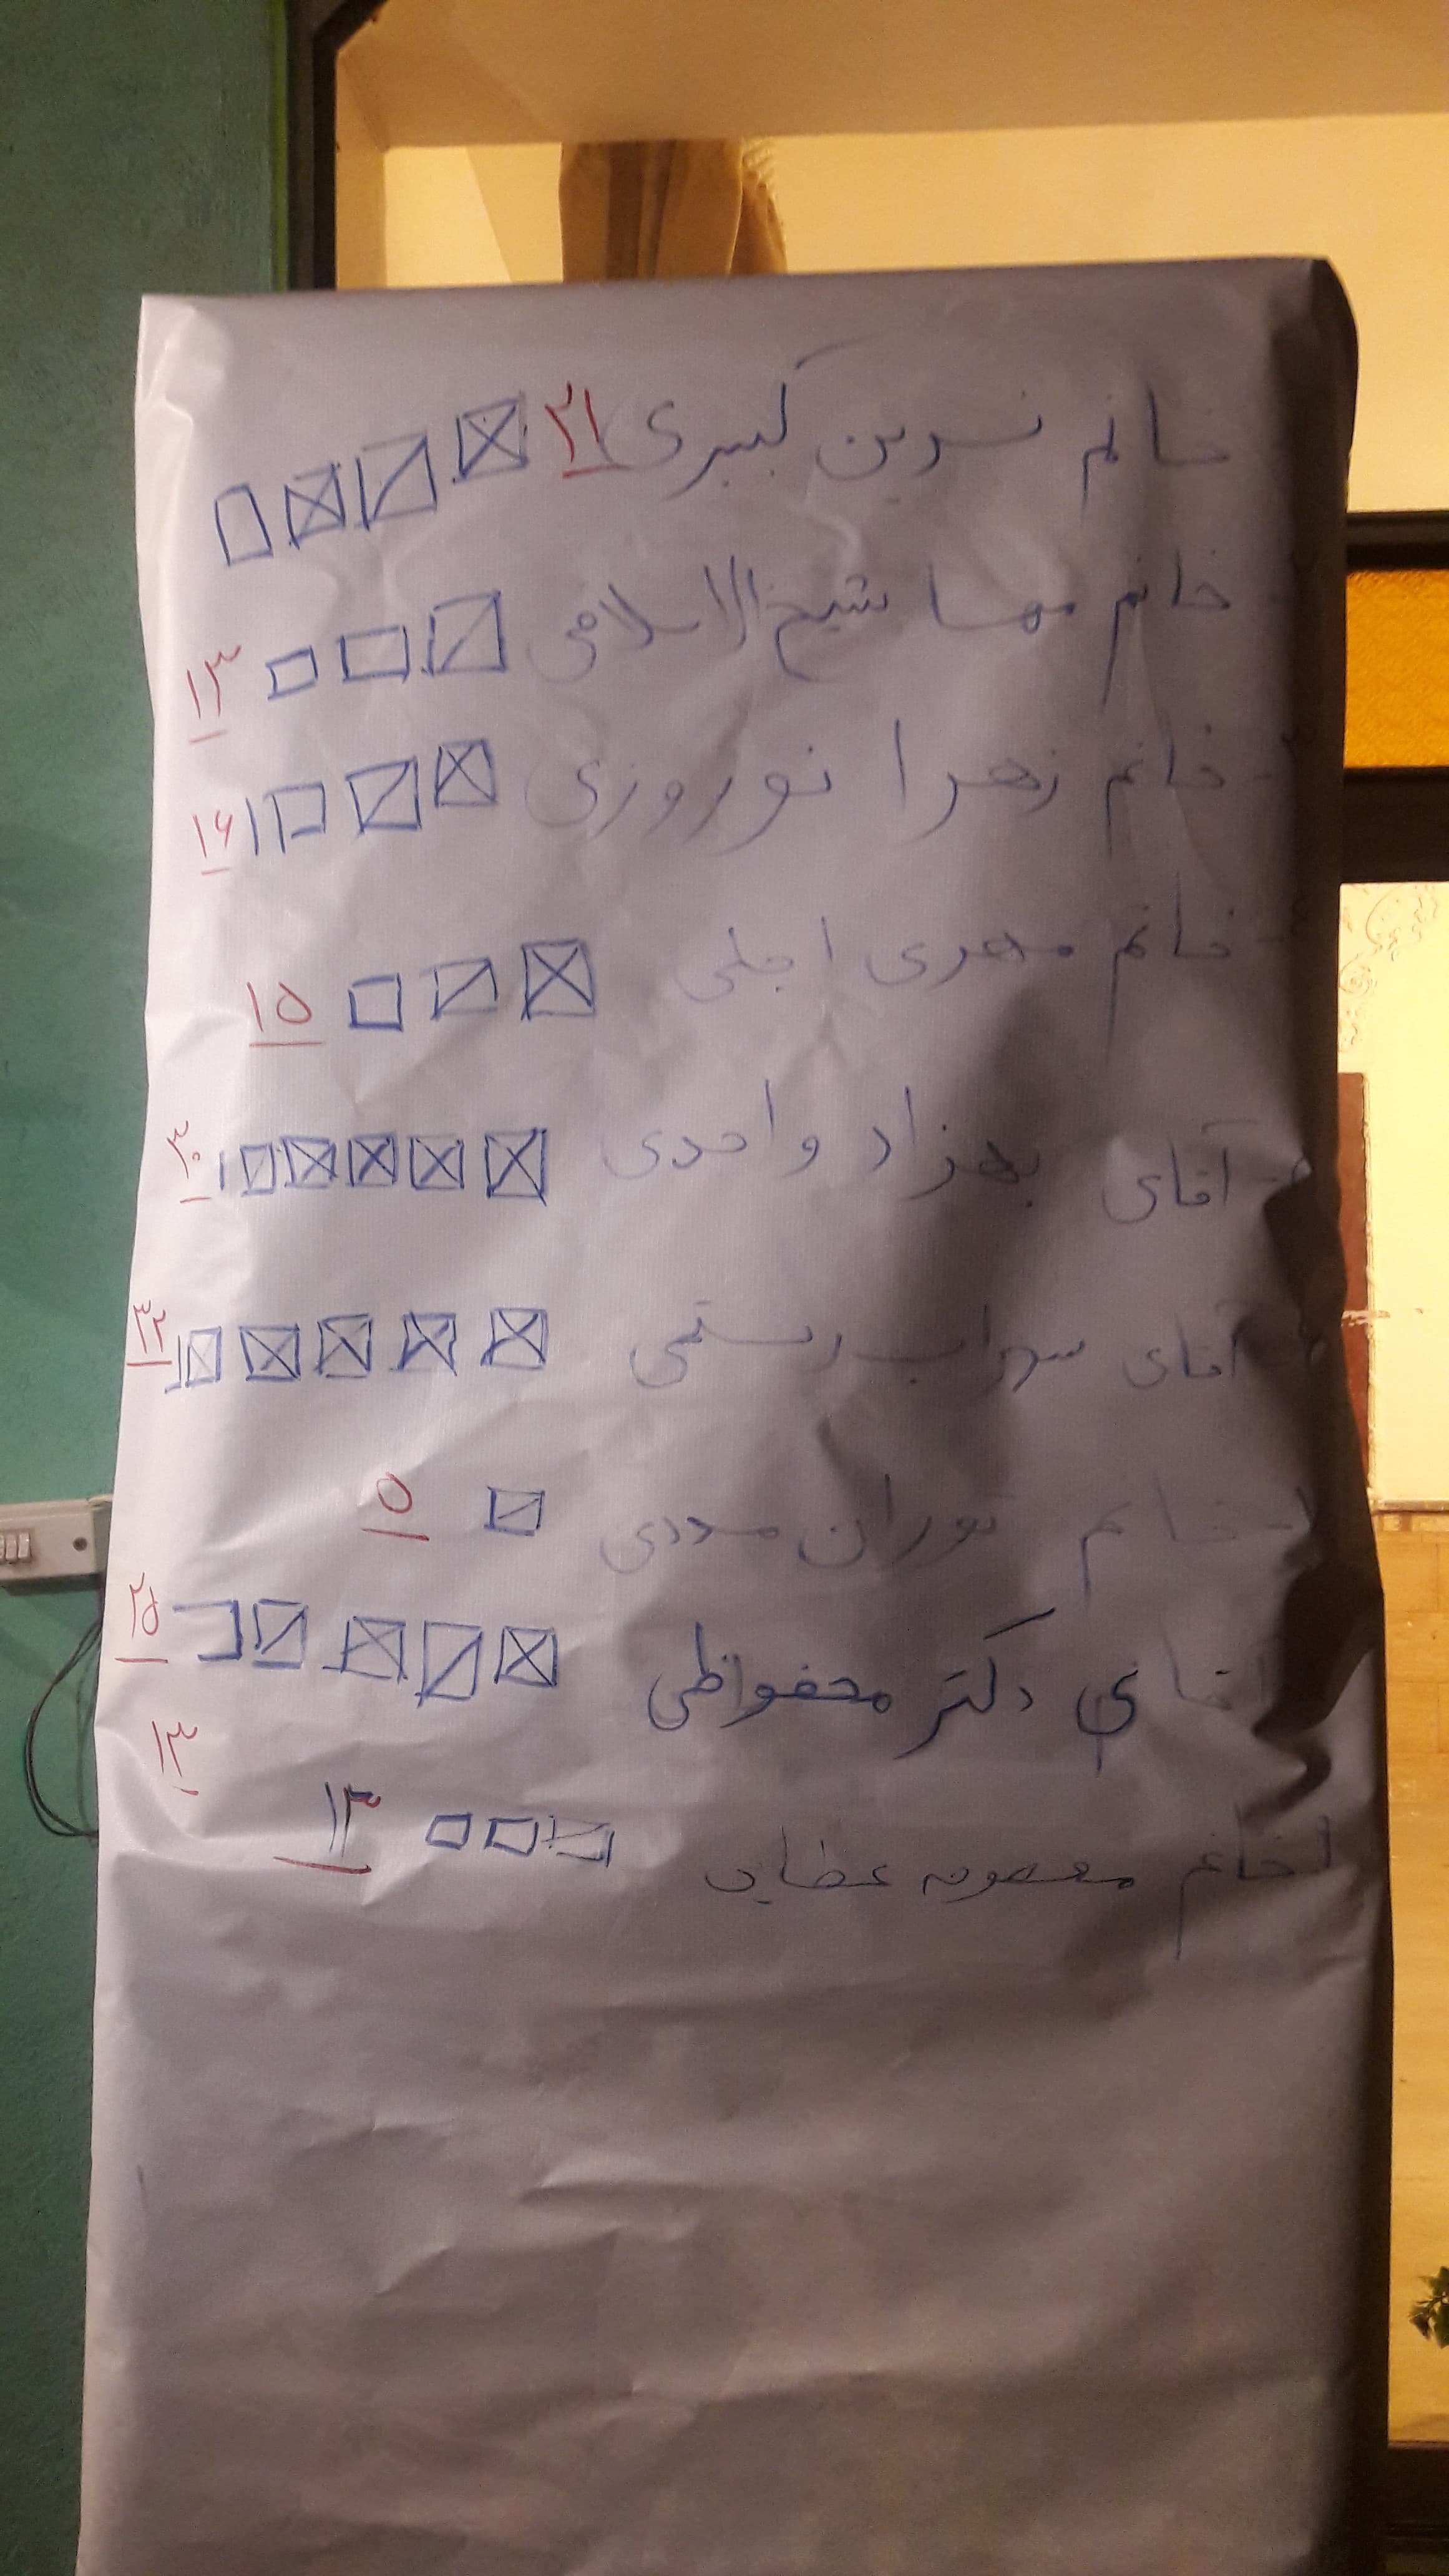 خانم نسرین کبیری ۲۱
خانم مهسا شیخ الاسلامی ۱۳
- خانم زهرا نوروزی ۱۶
- خانم مهری اجلی ۱۵
- آقای بهزاد واحدی ۳۰
آقای سهراب رستمی ۳۲
- خانم توران مددی ۵
آقای دکتر محفوظی ۲۵
۱۳
خانم معصومه عطایی ۱۳